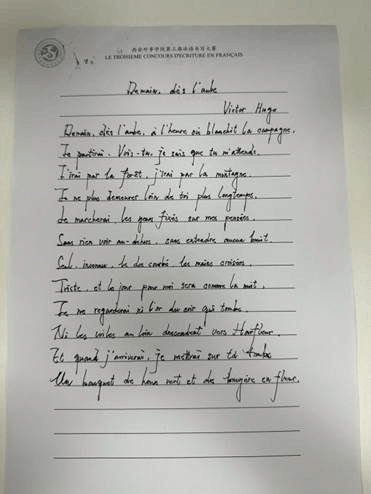 西安外事学院第三届法语书写大赛
LE TROISIEME CONCOURS D'ECRITURE EN FRANÇAIS
Demain, dès l'aube
Victor Hugo
Demain, dès l'aube, à l'heure où blanchit la campagne,
Je partirai. Vois-tu, je sais que tu m'attends.
J'irai par la forêt, j'irai par la montagne.
Je ne plus demeurer loin de toi plus longtemps.
Je marcherai les yeux fixés sur mes pensées,
Sans rien voir au-dehors, sans entendre aucun bruit,
Seul, inconnu, le dos courbé, les mains croisées,
Triste, et le jour pour moi sera comme la nuit.
Je ne regarderai ni l'or du soir qui tombe,
Ni les voiles au loin descendant vers Harfleur,
Et quand j'arriverai, je mettrai sur ta tombe
Un bouquet de houx vert et de bruyère en fleur.